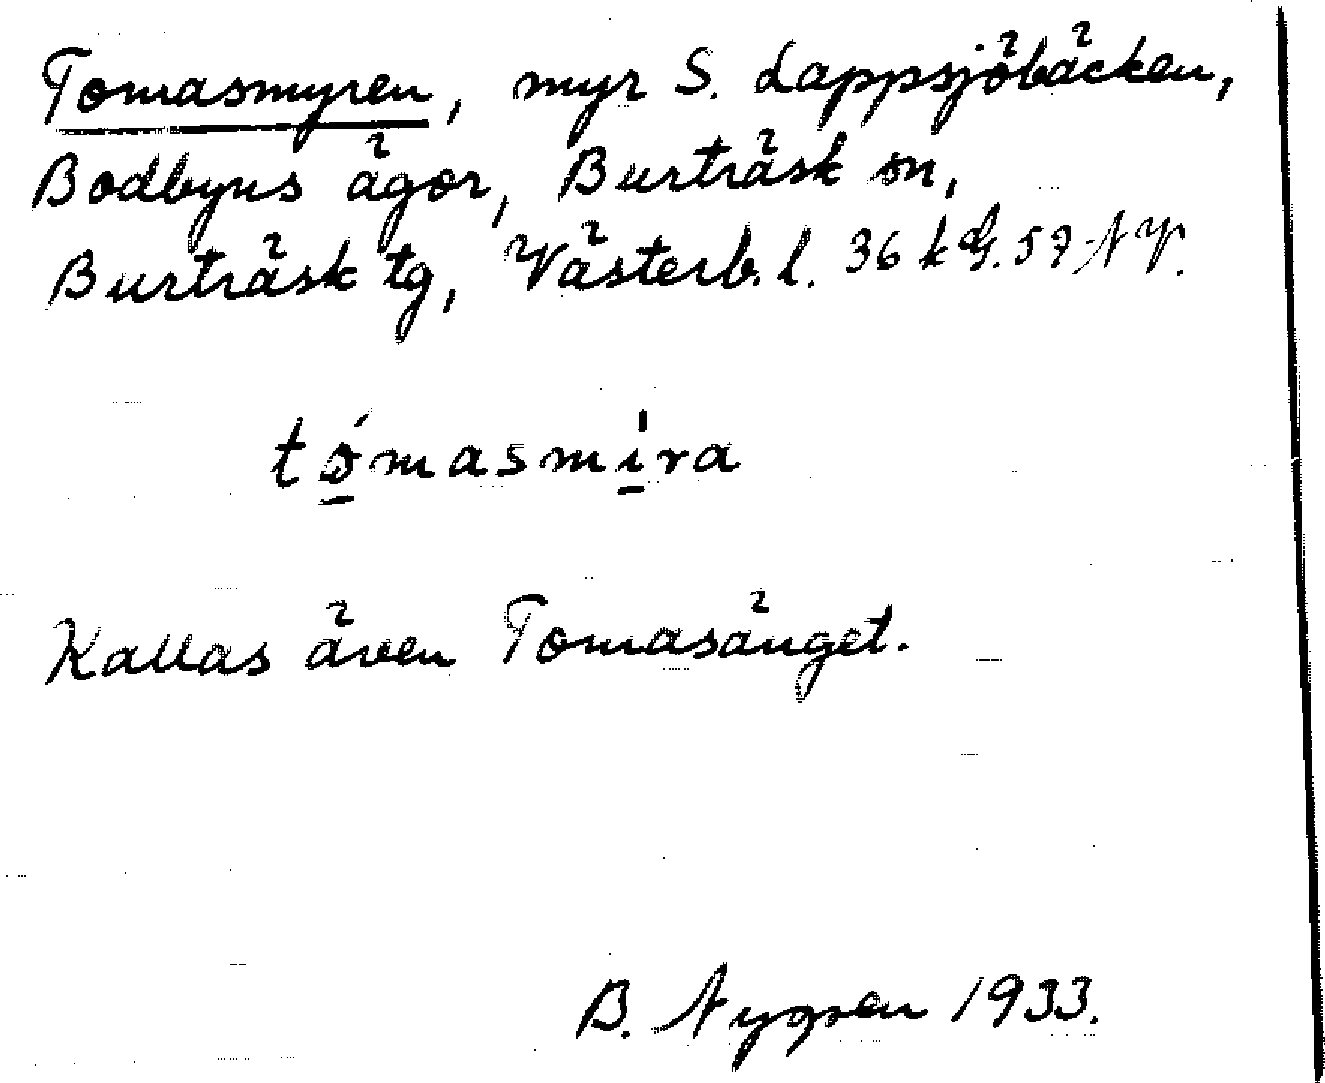 Tomasmyren, myr S. Lappsjöbäcken,
Bodbyns ägor, Burträsk sn,
Burträsk tg, Västerb. l. 36 k G. 59 NV.
tó̱masmi̱̍ra
Kallas även Tomasänget.
B. Nygren 1933.